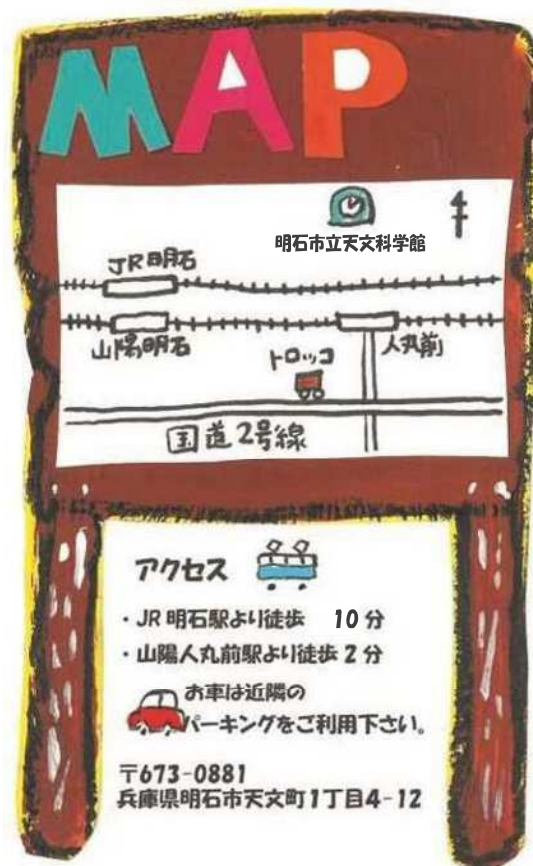 MAP
明石市立天文科学館
JR明石
山陽明石
人丸前
トロッコ
国道2号線
アクセス
・JR明石駅より徒歩 10分
・山陽人丸前駅より徒歩2分
お車は近隣の
パーキングをご利用下さい。
〒673-0881
兵庫県明石市天文町1丁目4-12